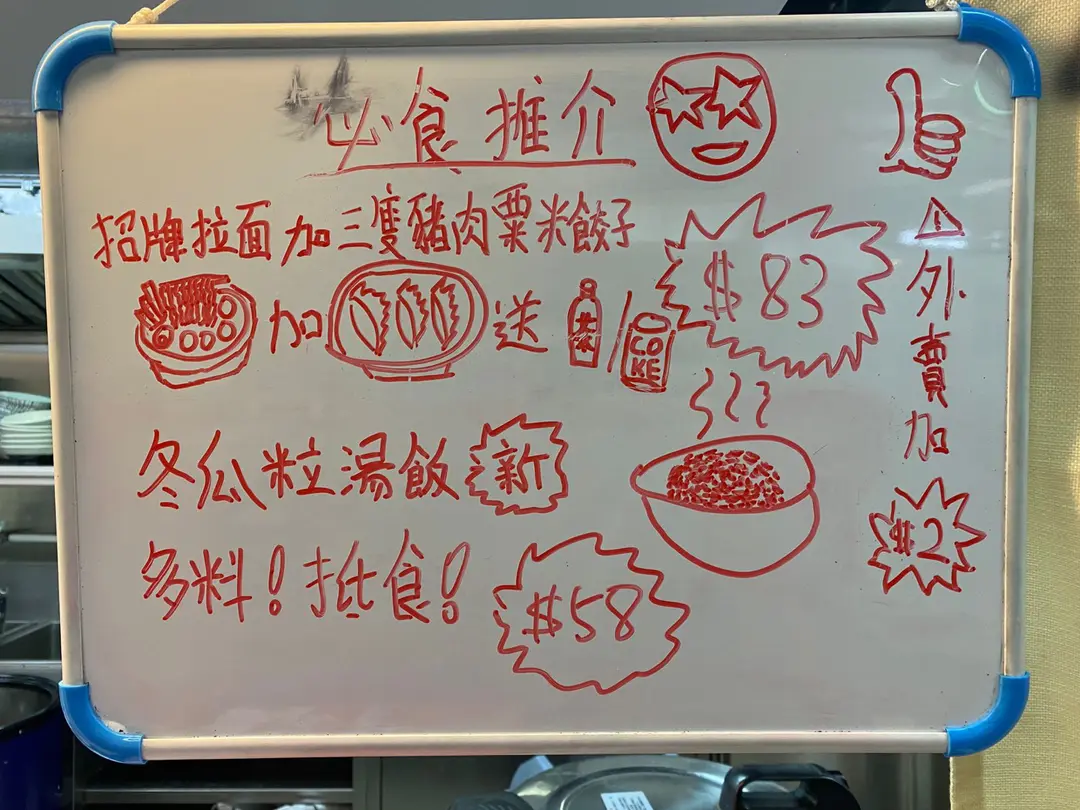 必食推介
招牌拉面加三隻豬肉粟米餃子
$83
加 送 / COKE
冬瓜粒湯飯 新
多料！抵食！
$58
外賣加
$2